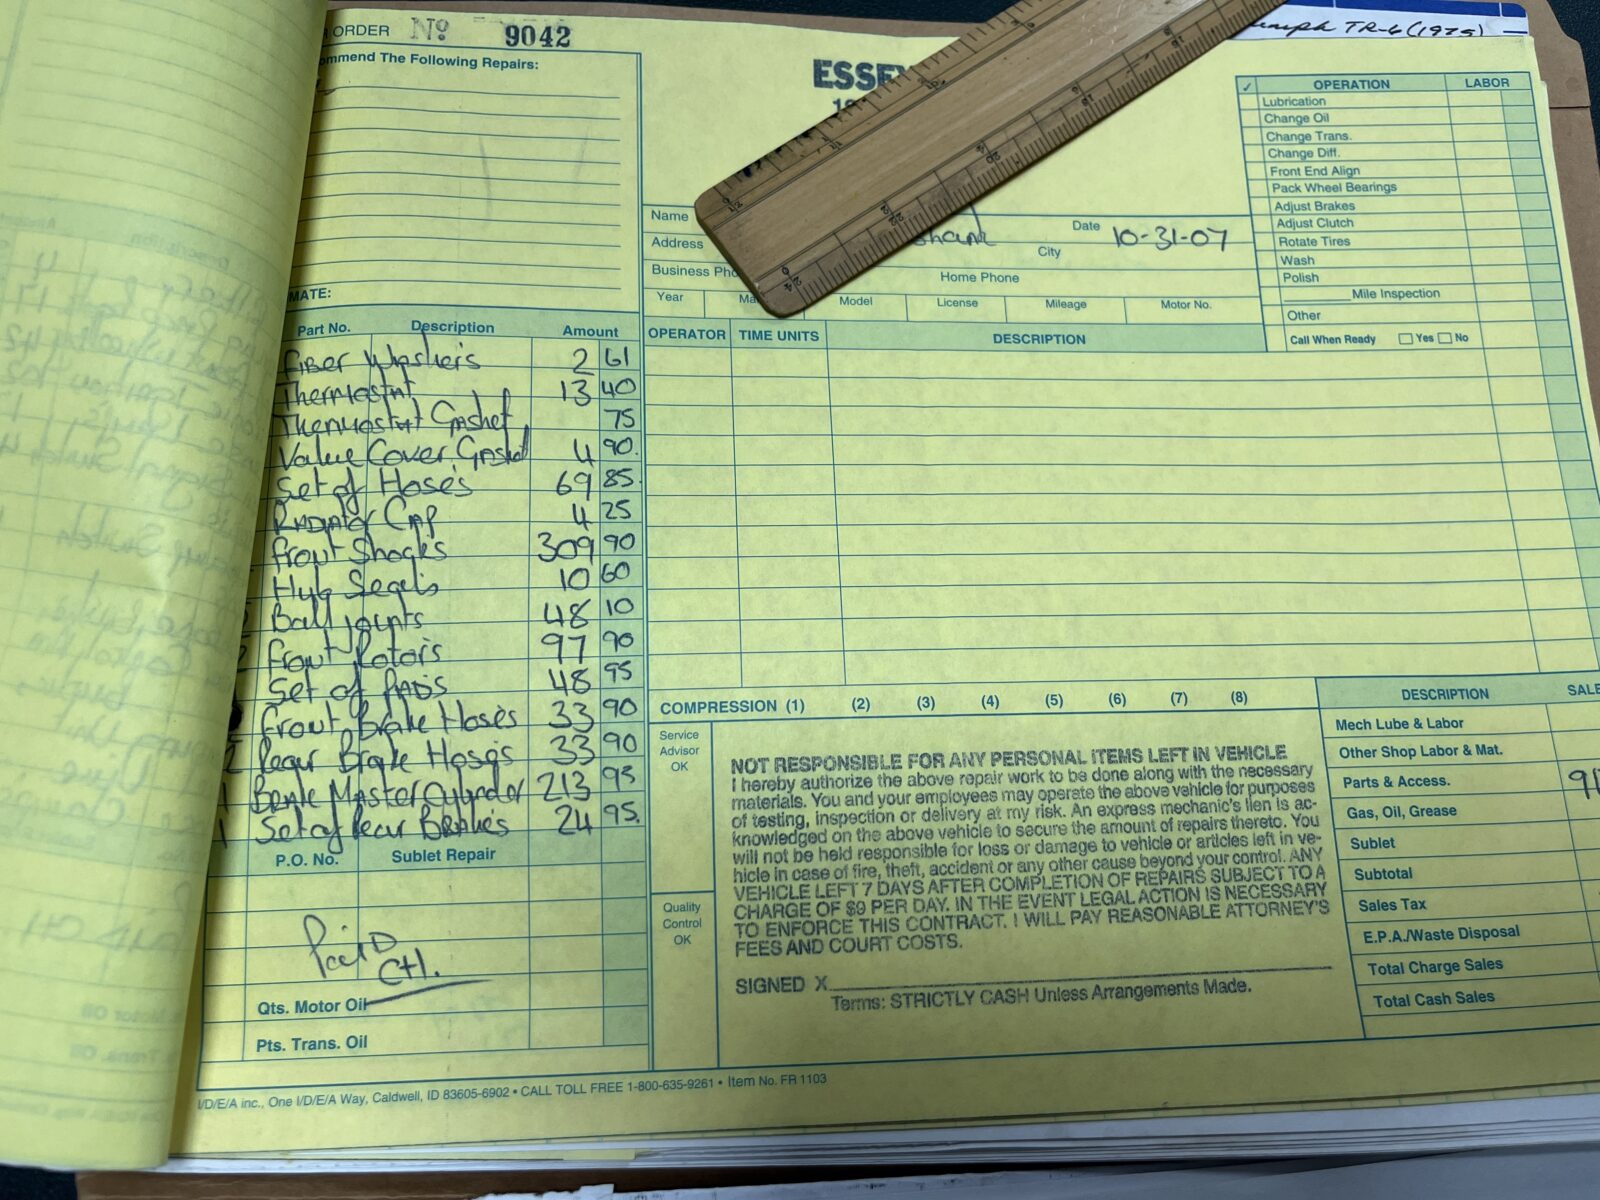 ORDER No 9042
mmend The Following Repairs:
MATE:
Part No. Description Amount
Fiber Washers 2 61
Thermostat 13 40
Thermostat Gasket 75
Valve Cover Gasket 4 90
Set of Hoses 69 85
Radiator Cap 4 25
Front Shocks 309 90
Hub Seals 10 60
Ball joints 48 10
2 Front Rotors 97 90
Set of Pads 48 95
Front Brake Hoses 33 90
2 Rear Brake Hoses 33 90
1 Brake Master Cylinder 213 95
1 Set of Rear Brakes 24 95
P.O. No. Sublet Repair
Paid CH.
Qts. Motor Oil
Pts. Trans. Oil
I/D/E/A inc., One I/D/E/A Way, Caldwell, ID 83605-6902 • CALL TOLL FREE 1-800-635-9261 • Item No. FR 1103
TR-6 (1975)
ESSEX
Name
Date 10-31-07
Address
City
Business Pho
Home Phone
Year Ma Model License Mileage Motor No.
OPERATOR TIME UNITS DESCRIPTION
✓ OPERATION LABOR
Lubrication
Change Oil
Change Trans.
Change Diff.
Front End Align
Pack Wheel Bearings
Adjust Brakes
Adjust Clutch
Rotate Tires
Wash
Polish
Mile Inspection
Other
Call When Ready Yes No
COMPRESSION (1) (2) (3) (4) (5) (6) (7) (8)
Service
Advisor
OK
Quality
Control
OK
NOT RESPONSIBLE FOR ANY PERSONAL ITEMS LEFT IN VEHICLE
I hereby authorize the above repair work to be done along with the necessary
materials. You and your employees may operate the above vehicle for purposes
of testing, inspection or delivery at my risk. An express mechanic's lien is ac-
knowledged on the above vehicle to secure the amount of repairs thereto. You
will not be held responsible for loss or damage to vehicle or articles left in ve-
hicle in case of fire, theft, accident or any other cause beyond your control. ANY
VEHICLE LEFT 7 DAYS AFTER COMPLETION OF REPAIRS SUBJECT TO A
CHARGE OF $9 PER DAY. IN THE EVENT LEGAL ACTION IS NECESSARY
TO ENFORCE THIS CONTRACT. I WILL PAY REASONABLE ATTORNEY'S
FEES AND COURT COSTS.
SIGNED X
Terms: STRICTLY CASH Unless Arrangements Made.
DESCRIPTION SALE
Mech Lube & Labor
Other Shop Labor & Mat.
Parts & Access.
Gas, Oil, Grease
Sublet
Subtotal
Sales Tax
E.P.A./Waste Disposal
Total Charge Sales
Total Cash Sales